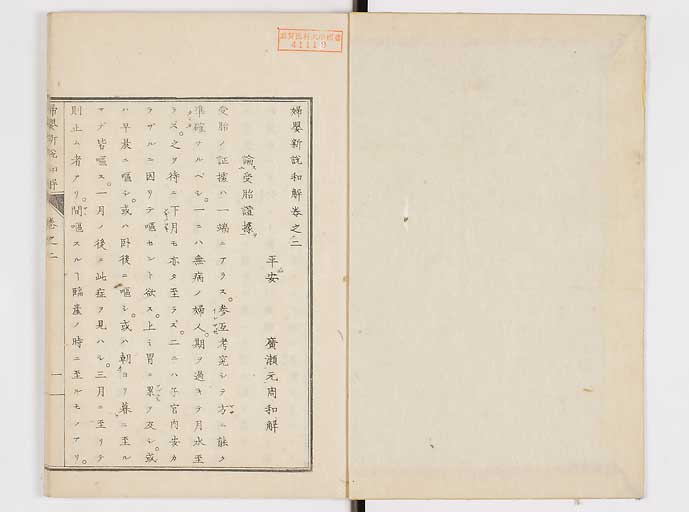 婦嬰新說和解卷之二
平安 廣瀨元周和解
論受胎證據
受胎ノ証據ハ一端ニアラス。参互考究シテ方ニ能ク
準確ナルベシ。一ニハ無病ノ婦人。期ヲ過キテ月水至
ラズ。之ヲ待ニ下月モ亦タ至ラズ。二ニハ子宮内安カ
ラザルニ因リテ嘔セント欲ス。上ミ胃ニ累ヲ及シ。或
ハ早晨ニ嘔シ。或ハ卧後ニ嘔シ。或ハ朝ヨリ暮ニ至ル
マデ皆嘔ス。一月ノ後ニ此症ヲ見ハシ。三月ニ至リテ
則止ム者アリ。間嘔スルヿ臨產ノ時ニ至ルモノアリ。
婦嬰新說和解 卷之二 一
41119